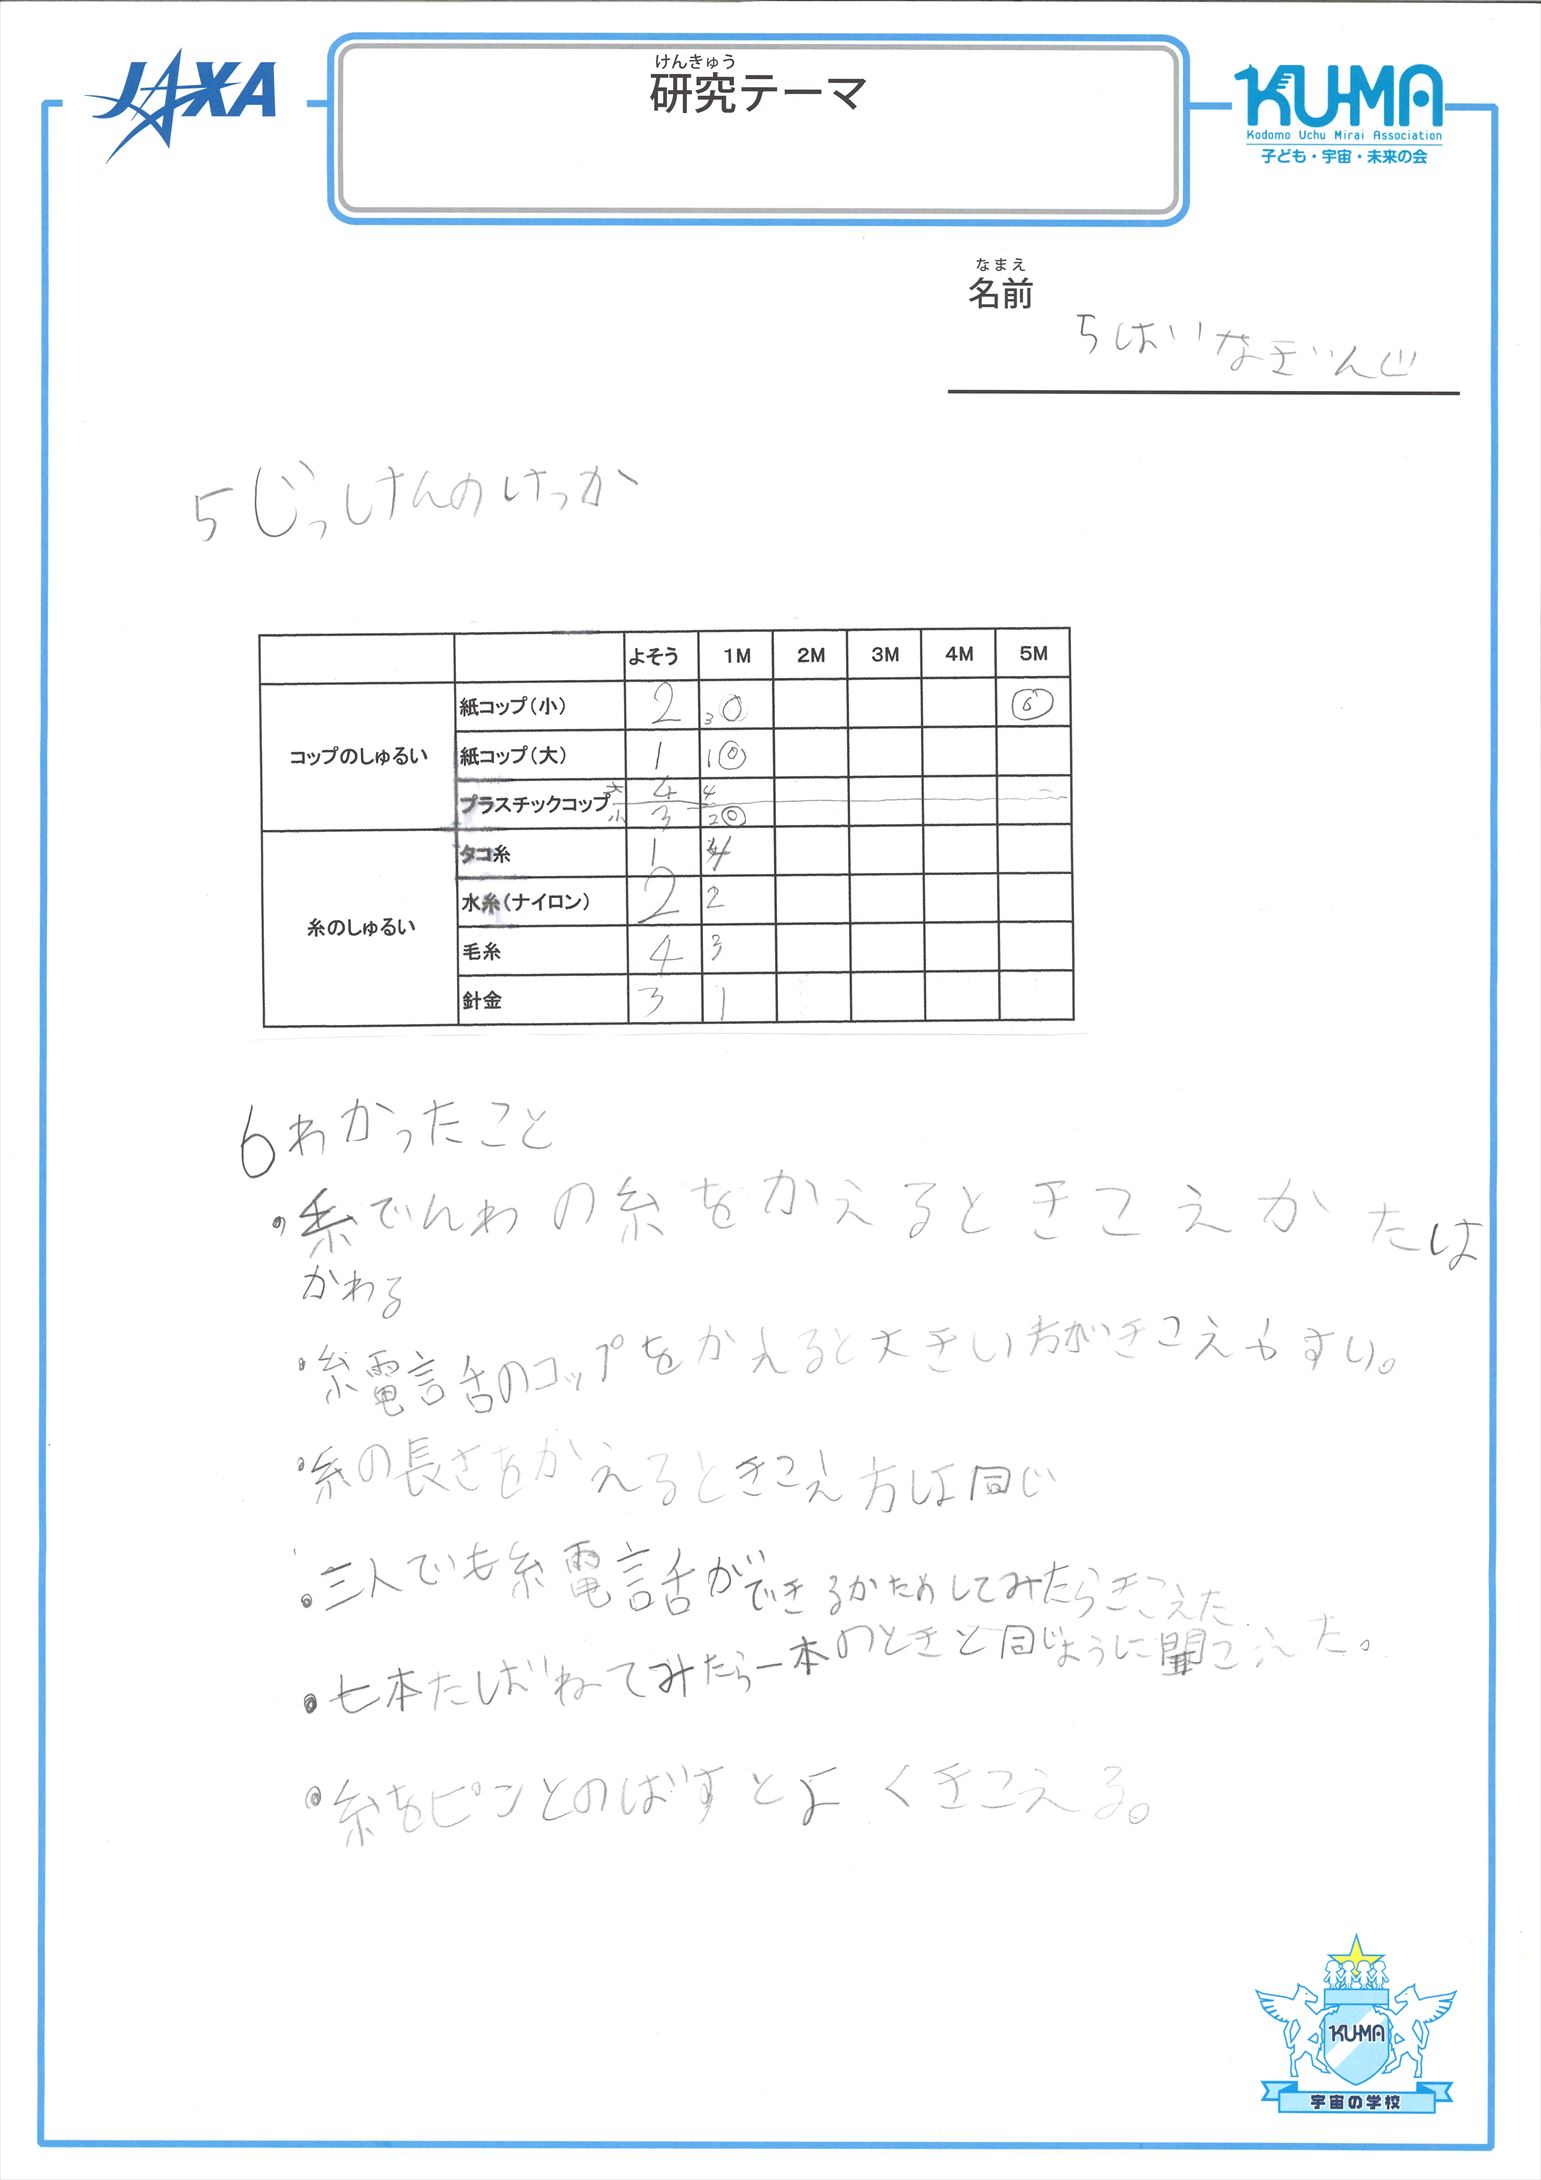 JAXA
けんきゅう
研究テーマ
KU-MA
Kodomo Uchu Mirai Association
子ども・宇宙・未来の会
なまえ
名前
5 じっけんのけっか
よそう 1M 2M 3M 4M 5M
コップのしゅるい
紙コップ(小) 2 3 ○
紙コップ(大) 1 1 ◎
プラスチックコップ 大 4 4
小 3 2 ◎
糸のしゅるい
タコ糸 1 4
水糸(ナイロン) 2 2
毛糸 4 3
針金 3 1
6 わかったこと
・糸でんわの糸をかえるときこえかたは
かわる
・糸電話のコップをかえると大きい方がきこえやすい。
・糸の長さをかえるときこえ方は同じ
・三人でも糸電話ができるかためしてみたらきこえた
・七本たばねてみたら一本のときと同じように聞こえた。
・糸をピンとのばすとよくきこえる。
KU-MA
宇宙の学校